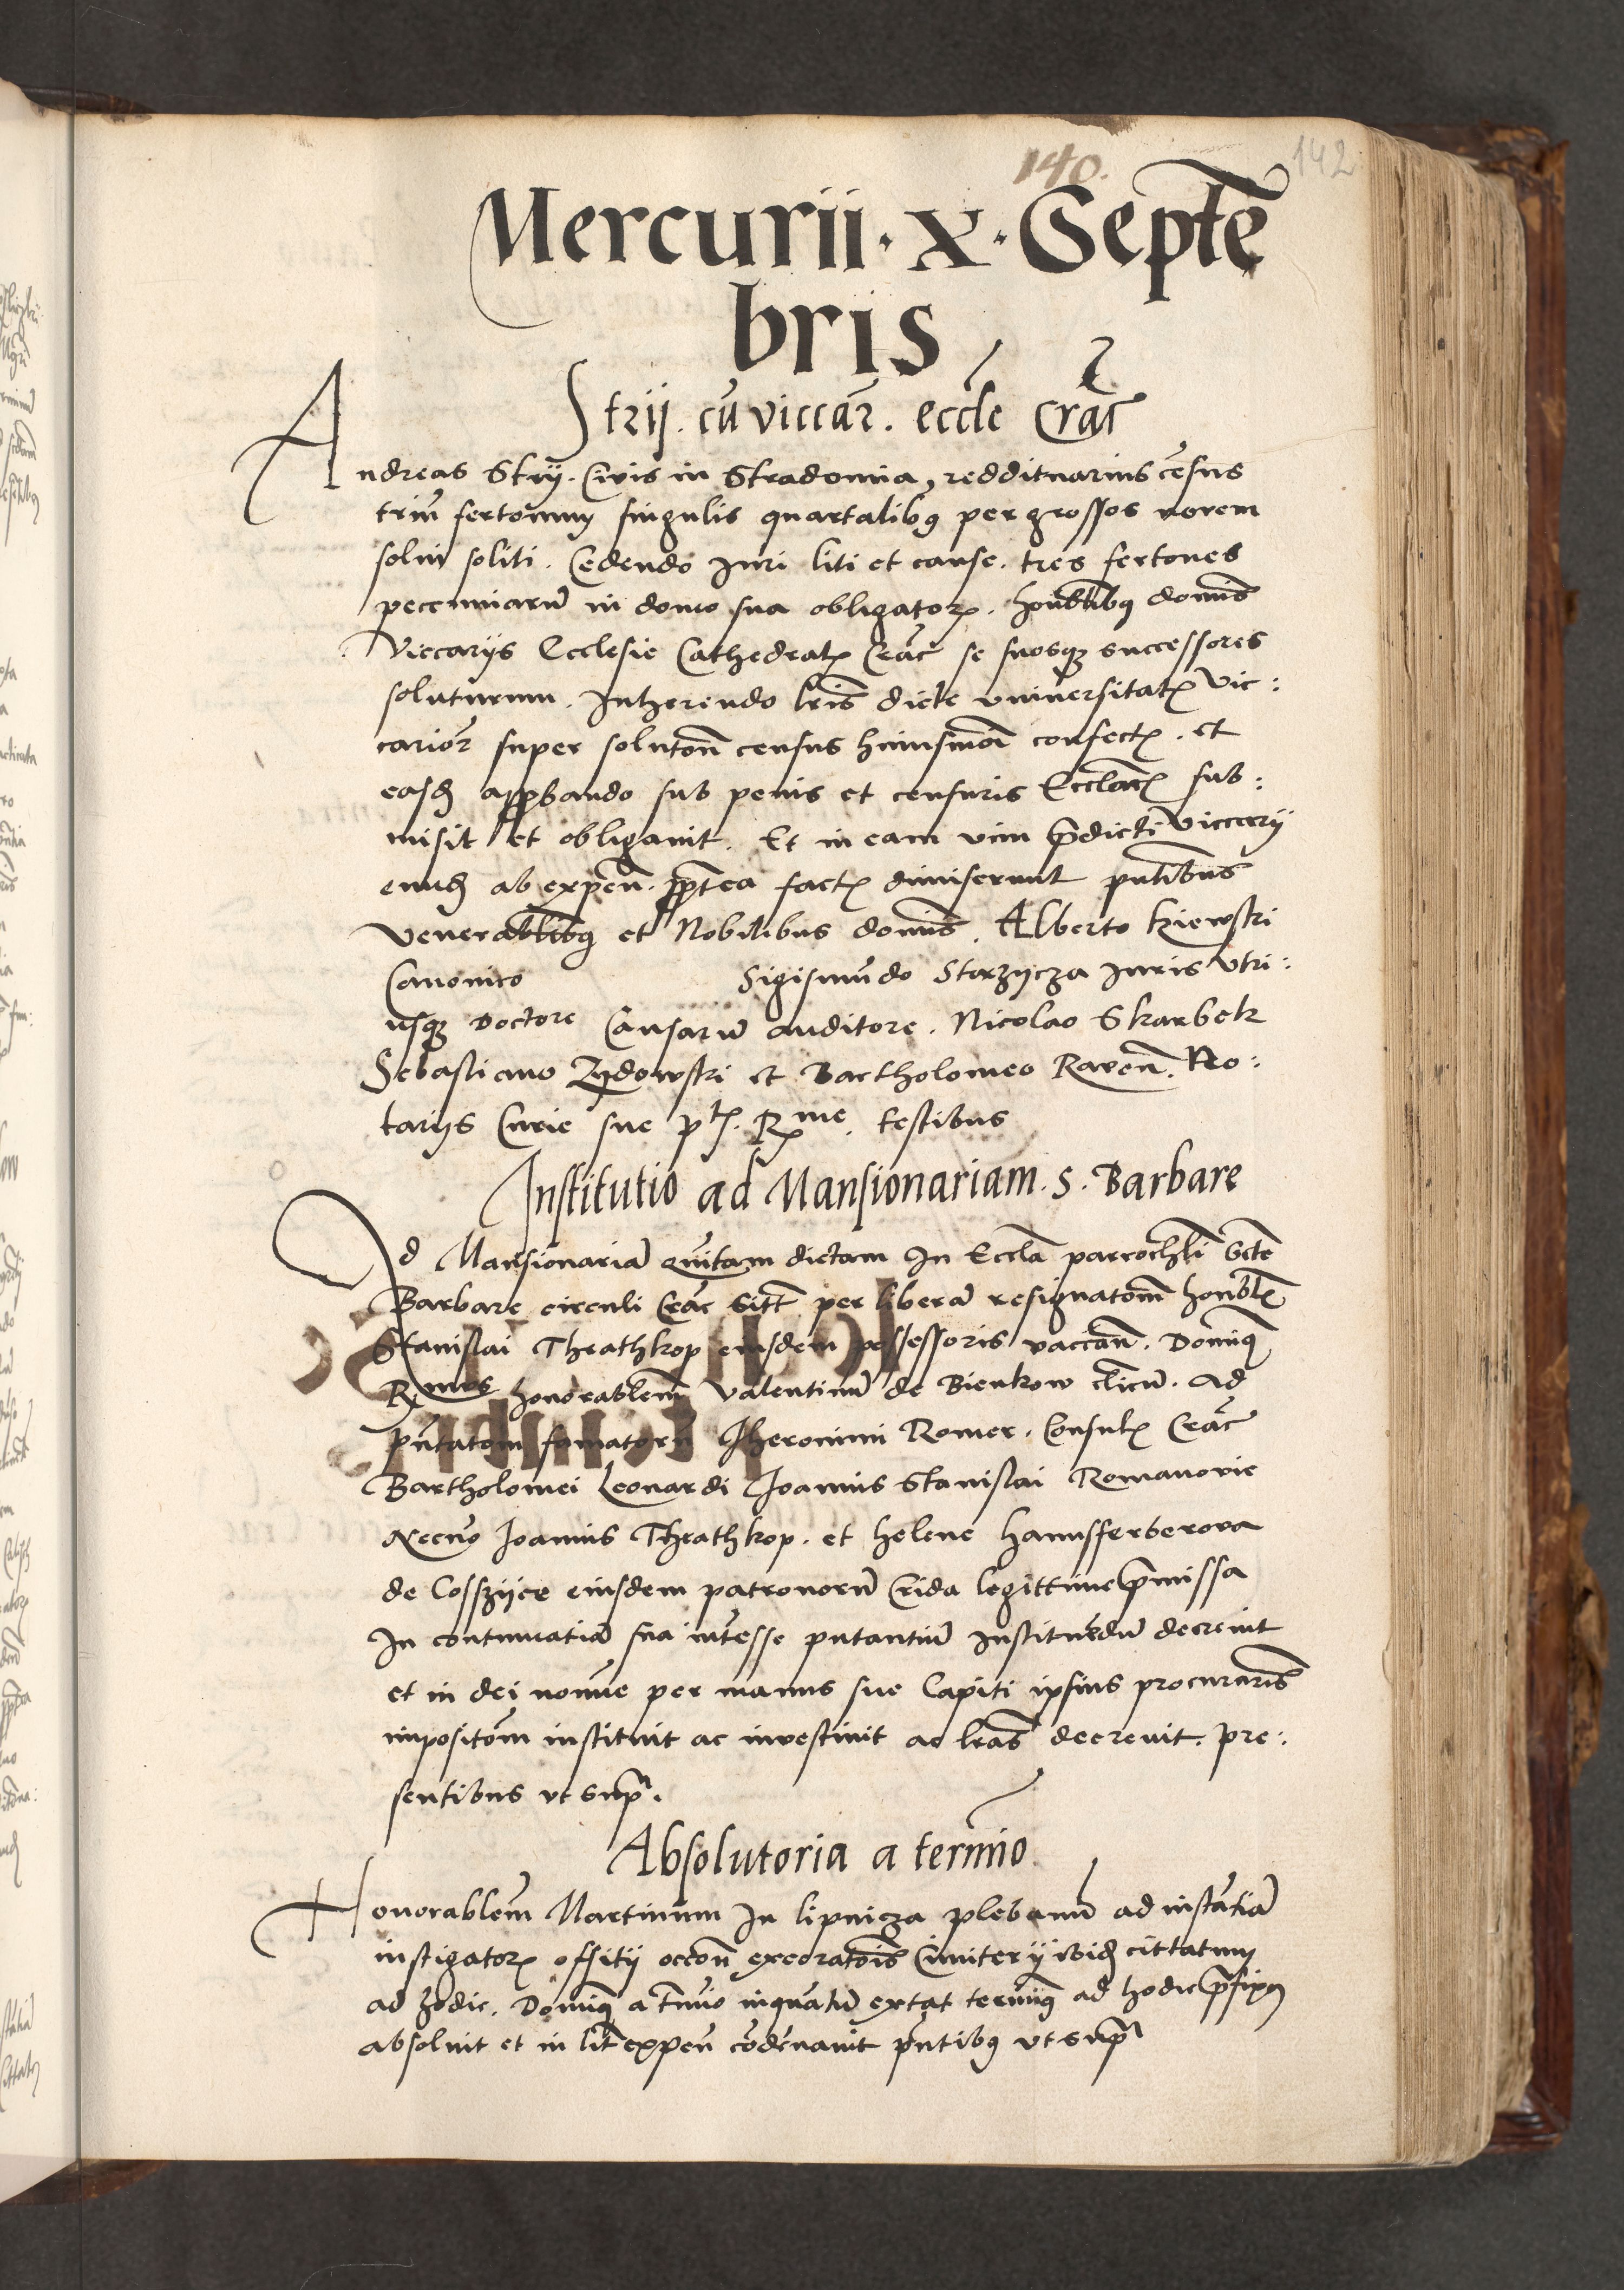 140.
142
Mercurii · X · Septē
bris
Strij. cū viccar̄. eccłe Crac̄
Andreas Strij. Civis in Stradomia, reddituarius cēsus
triū fertonum singulis quartalibꝫ per grossos novem
solui soliti. Cedendo Juri liti et cause. tres fertones
pecuniarū in domo sua obligatoꝝ. honblībꝫ domīs
Viccarijs Ecclesie Cathedralꝭ Crac̄ se suosqꝫ successores
soluturum. Inherendo lrīs dicte vniversitatꝭ Vic:
carior̄ super solutōn census huiusmōi confectꝭ. et
easdꝫ approbando sub penis et censuris Ecclāticꝭ sub:
misit et obligauit. Et in eam vim p̄dicti Viccarij
eundꝫ ab expen̄. ꝓp̄tea factꝭ dimiserunt pn̄tibus
venerablībꝫ et Nobilibus domīs. Alberto Kiewski
Canonico Sigismūdo Starzijcza Juris Vtri:
usqꝫ Doctore Causarū auditore. Nicolao Skarbek
Sebastiano Zydowski et Bartholomeo Raven̄. No:
tarijs Curie sue ptꝭ. Rme. testibus
Institutio ad Mansionariam. S. Barbare
Ad Mansionariā quītam dictam In Ecclā parrochłi Scte
Barbare circuli Crac̄ sitt̄ per liberā resignatōm honblꝭ
Stanislai Thrathkop eiusdem possessoris vaccān. Domiqꝫ
Rmus honorablem̄ Valentinū de Bienkow clicū. ad
pn̄tatōm famatorū Jheronimi Romer. Consulꝭ Crac̄
Bartholomei Leonardi Joannis Stanislai Romanovic
Necnō Joannis Thrathkop. et helene hannsferberova
de Cosszijce eiusdem patronorū Crida legittime p̄missa
In contumatiā sua int̄esse putantiū Instituēdū decreuit
et in dei nomīe per manus sue Capiti ipsius procurarīs
impositōm instituit ac investiuit ac lrās decreuit. pre:
sentibus vt supᷓ.
Absolutoria a termīo
Honorablem̄ Martinum In lipnicza plebanū ad instātiā
instigatoꝝ offitij occōn execratōis Cimiterij ibidꝫ cittatum
ad hodie. Domiqꝫ a tm̄io inquātū extat termiqꝫ ad hodie p̄fixꝫ
absoluit et in lit̄ expen̄ cōdēnauit pn̄tibꝫ vt supᷓ